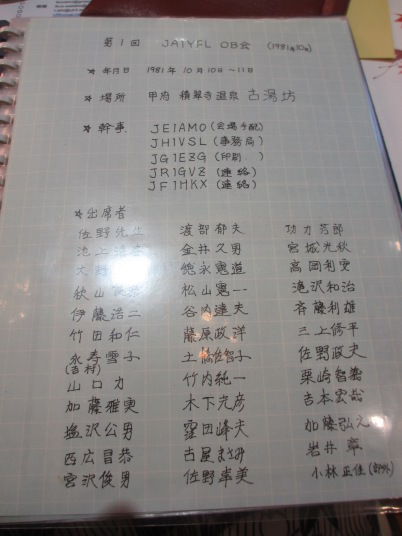 第1回 JA1YFL OB会 (1981年10月)
☆ 年月日 1981年10月10日～11日
☆ 場所 甲府 積翠寺温泉 古湯坊
☆ 幹事 JE1AMO (会場手配)
JH1VSL (事務局)
JG1EZG (印刷)
JR1GVZ (連絡)
JF1HKX (連絡)
☆出席者
佐野先生 渡部郁夫
金井久男 宮城光秋
徳永憲道 高岡利実
松山憲一 滝沢和治
伊藤浩二 谷内達夫 斉藤利雄
竹田和仁 藤原政洋 三上修平
永寿雪子 佐野政夫
(吉村)
山口力 竹内純一
加藤雅実 木下光彦 加藤弘
塩沢公男 窪田峰夫 岩井章
西広昌恭 古屋まさみ 小林正佳
宮沢俊男 佐野幸美